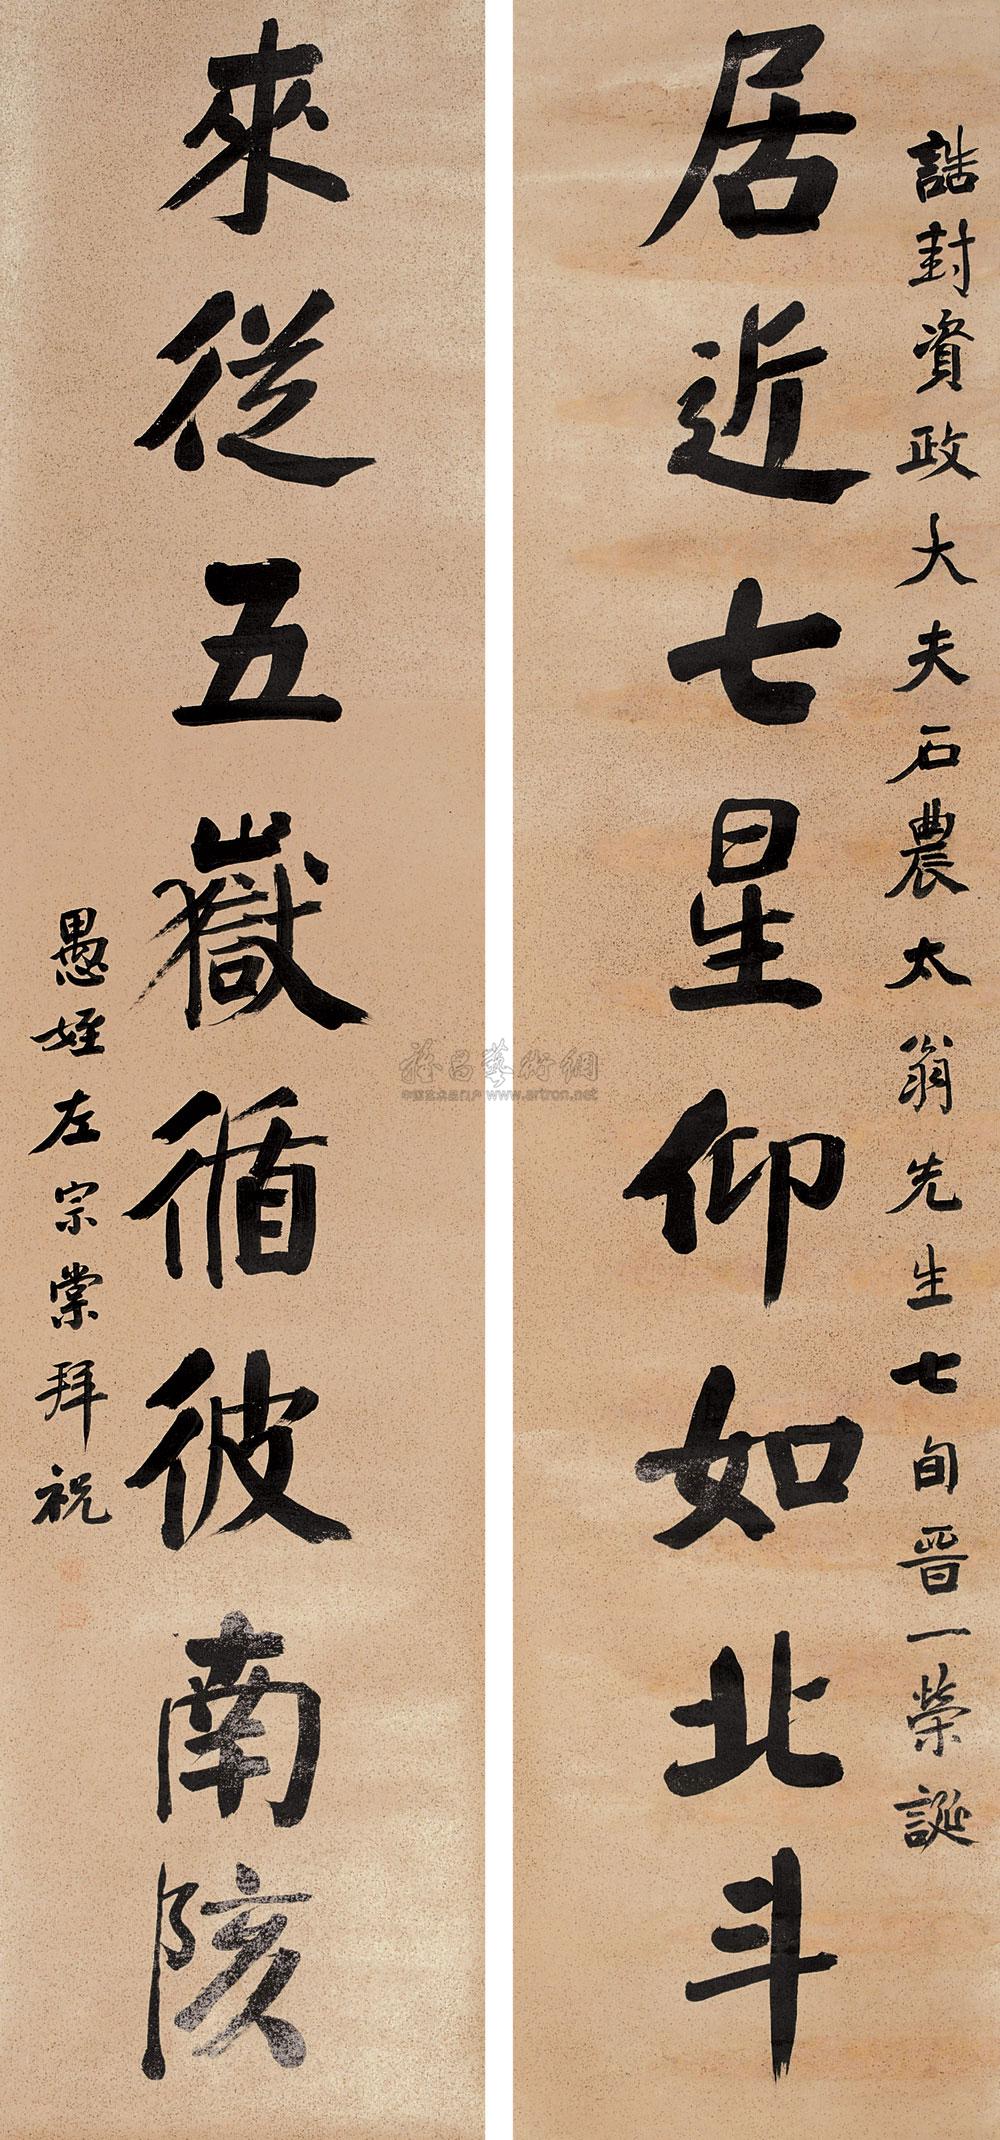 誥封資政大夫石農太翁先生七旬晉一榮誕
居近七星仰如北斗
來從五嶽循彼南陔
愚姪左宗棠拜祝
雅昌藝術網
中国艺术品门户 www.artron.net